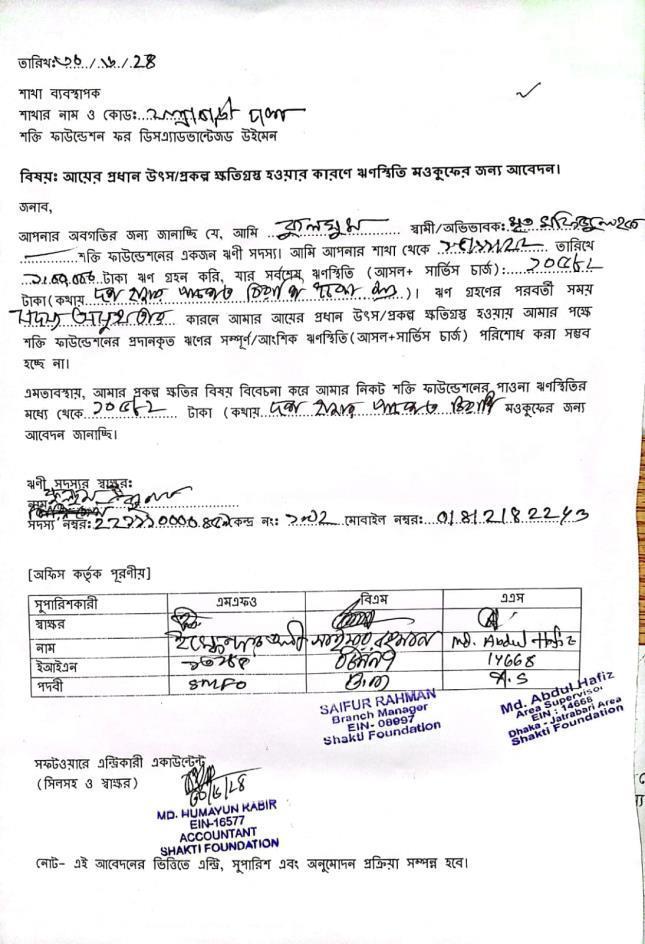 তারিখঃ৩০/৬/২৪
শাখা ব্যবস্থাপক
শাখার নাম ও কোড:
শক্তি ফাউন্ডেশন ফর ডিসএ্যাডভান্টেজড উইমেন
বিষয়ঃ আয়ের প্রধান উৎস/প্রকল্প ক্ষতিগ্রস্থ হওয়ার কারণে ঋণস্থিতি মওকুফের জন্য আবেদন।
জনাব,
আপনার অবগতির জন্য জানাচ্ছি যে, আমি কুলসুম স্বামী/অভিভাবক: মৃত
শক্তি ফাউন্ডেশনের একজন ঋণী সদস্য। আমি আপনার শাখা থেকে তারিখে
টাকা ঋণ গ্রহন করি, যার সর্বশেষ ঋণস্থিতি (আসল+ সার্ভিস চার্জ): ১০৫৮২
টাকা(কথায় দশ হাজার পাঁচশত )। ঋণ গ্রহণের পরবর্তী সময়
কারনে আমার আয়ের প্রধান উৎস/প্রকল্প ক্ষতিগ্রস্থ হওয়ায় আমার পক্ষে
শক্তি ফাউন্ডেশনের প্রদানকৃত ঋণের সম্পূর্ণ/আংশিক ঋণস্থিতি(আসল+সার্ভিস চার্জ) পরিশোধ করা সম্ভব
হচ্ছে না।
এমতাবস্থায়, আমার প্রকল্প ক্ষতির বিষয় বিবেচনা করে আমার নিকট শক্তি ফাউন্ডেশনের পাওনা ঋণস্থিতির
মধ্যে থেকে ১০৫৮২ টাকা (কথায় দশ হাজার পাঁচশত বিরাশি মওকুফের জন্য
আবেদন জানাচ্ছি।
ঋণী সদস্যর স্বাক্ষর:
নাম:
সদস্য নম্বর: কেন্দ্র নং: মোবাইল নম্বর: 01812182243
[অফিস কর্তৃক পূরণীয়]
সুপারিশকারী এমএফও বিএম এএস
স্বাক্ষর
নাম সাইফুর রহমান Md. Abdul Hafiz
ইআইএন 14668
পদবী SMFO B.M A.S
SAIFUR RAHMAN
Branch Manager
EIN- 08997
Shakti Foundation
Md. Abdul Hafiz
Area Supervisor
EIN : 14668
Dhaka - Jatrabari Area
Shakti Foundation
সফটওয়ারে এন্ট্রিকারী একাউন্টেন্ট
(সিলসহ ও স্বাক্ষর)
৩০/৬/২৪
MD. HUMAYUN KABIR
EIN-16577
ACCOUNTANT
SHAKTI FOUNDATION
নোট- এই আবেদনের ভিত্তিতে এন্ট্রি, সুপারিশ এবং অনুমোদন প্রক্রিয়া সম্পন্ন হবে।